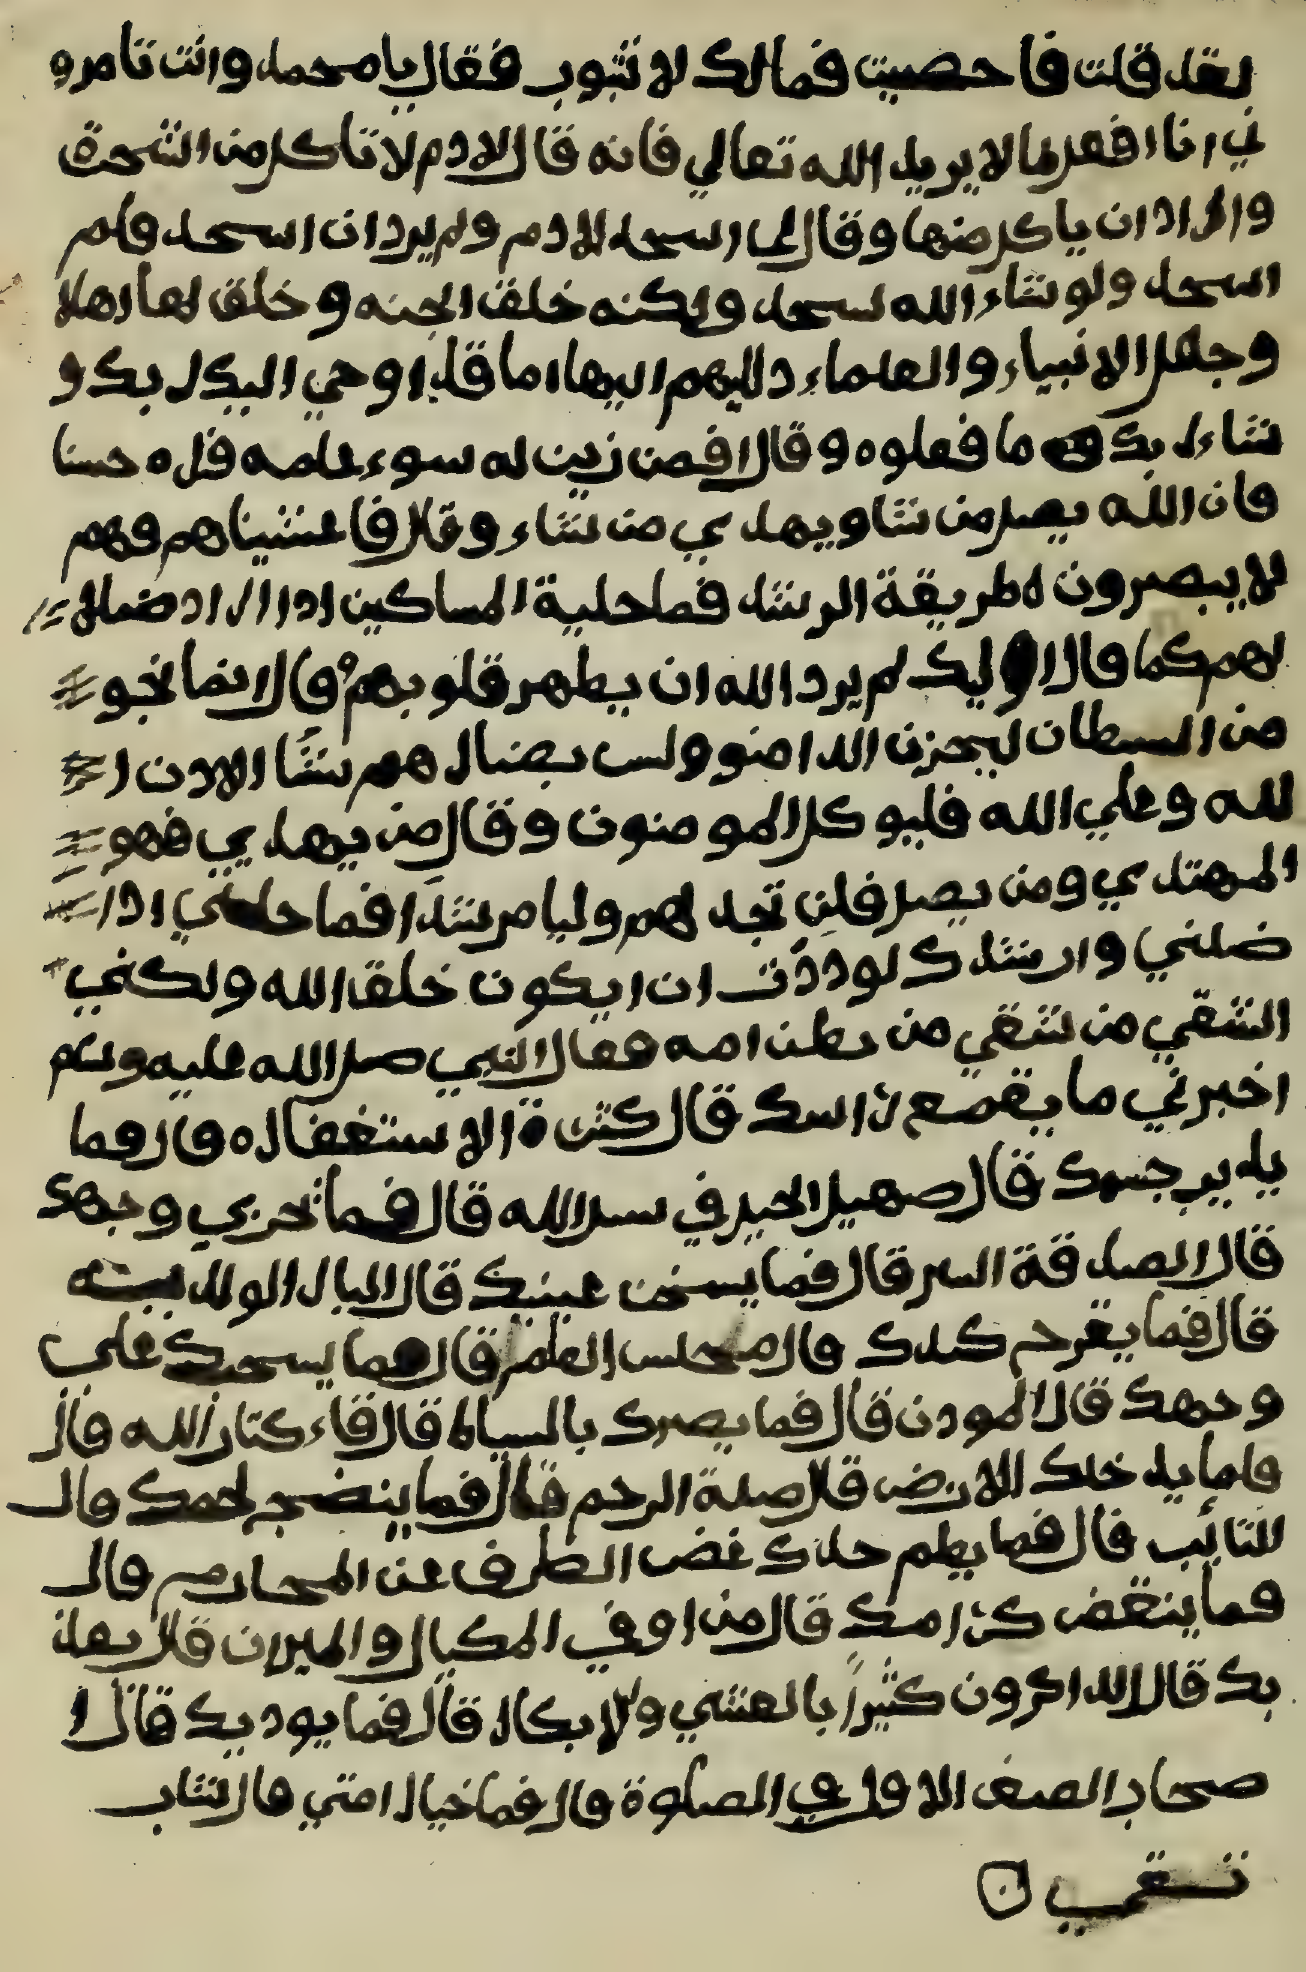 لقد قلت فا حصيت فمالك لا تتوب فقال يا محمد وانت تامرو
ني انا افعل ما لا يريد الله تعالي فانه قال لادم لا تاكل من الشجرة
واراد ان ياكل منها وقال لي اسجد لادم ولم يرد ان اسجد فلم
اسجد ولو شاء الله لسجد ولكنه خلق الجنه و خلق لها اهلا
وجعل الانبياء والعلماء دليهم اليها اما قلا اوحي اليك ربك و
شاء ربك ما فعلوه وقال افمن زين له سوء علمه فراه حسنا
فان الله يصل من نشا ويهدي من نشاء وقال فاغشيناهم فهم
لا يبصرون طريقة الرشد فما حلية المساكين اذا اراد ضلالا
لهم كما قال اوليك لم يرد الله ان يطهر قلوبهم وقال انما نجو
من السطان ليحزن الدا منو ولس بضال هم شئا الا دن ا
لله وعلي الله فليو كل المو منون وقال من يهدي فهو
المهتدي ومن يصل فلن تجد لهم وليا مرشدا فما حلتي اذا
ضلني وارشدك لو ددت ان ايكون خلق الله ولكني
الشقي من شقي من بطن امه فقال النبي صل الله عليه وسلم
اخبرني ما يقمع راسك قال كثرة الا ستغفار ه قال فما
يذيب جسدك قال صهيل الخيل في سبل الله قال فما يخزي وجهك
قال الصد قة السر قال فما يسخن عينك قال المال الولد
قال فما يقرحم كبدك قال مجلس العلم قال فما يسحبك علي
وجهك قال المودن قال فما يصرك بالسياط قال قراء كتاب الله قال
فلما يد خلك للارض قال صلة الرحم قال فما ينضج لحمك قال
التائب قال فما يطم حدك غض الطرف عن المحارم قال
فما ينقض كرامك قال من اوفي المكيال والميزان قال يعذ
بك قال الداكرون كثيرا بالعشي ولابكار قال فما يوديك قال ا
صحاب الصف الا ول في الصلوة قال فما خيار امتي قال شاب
تقي